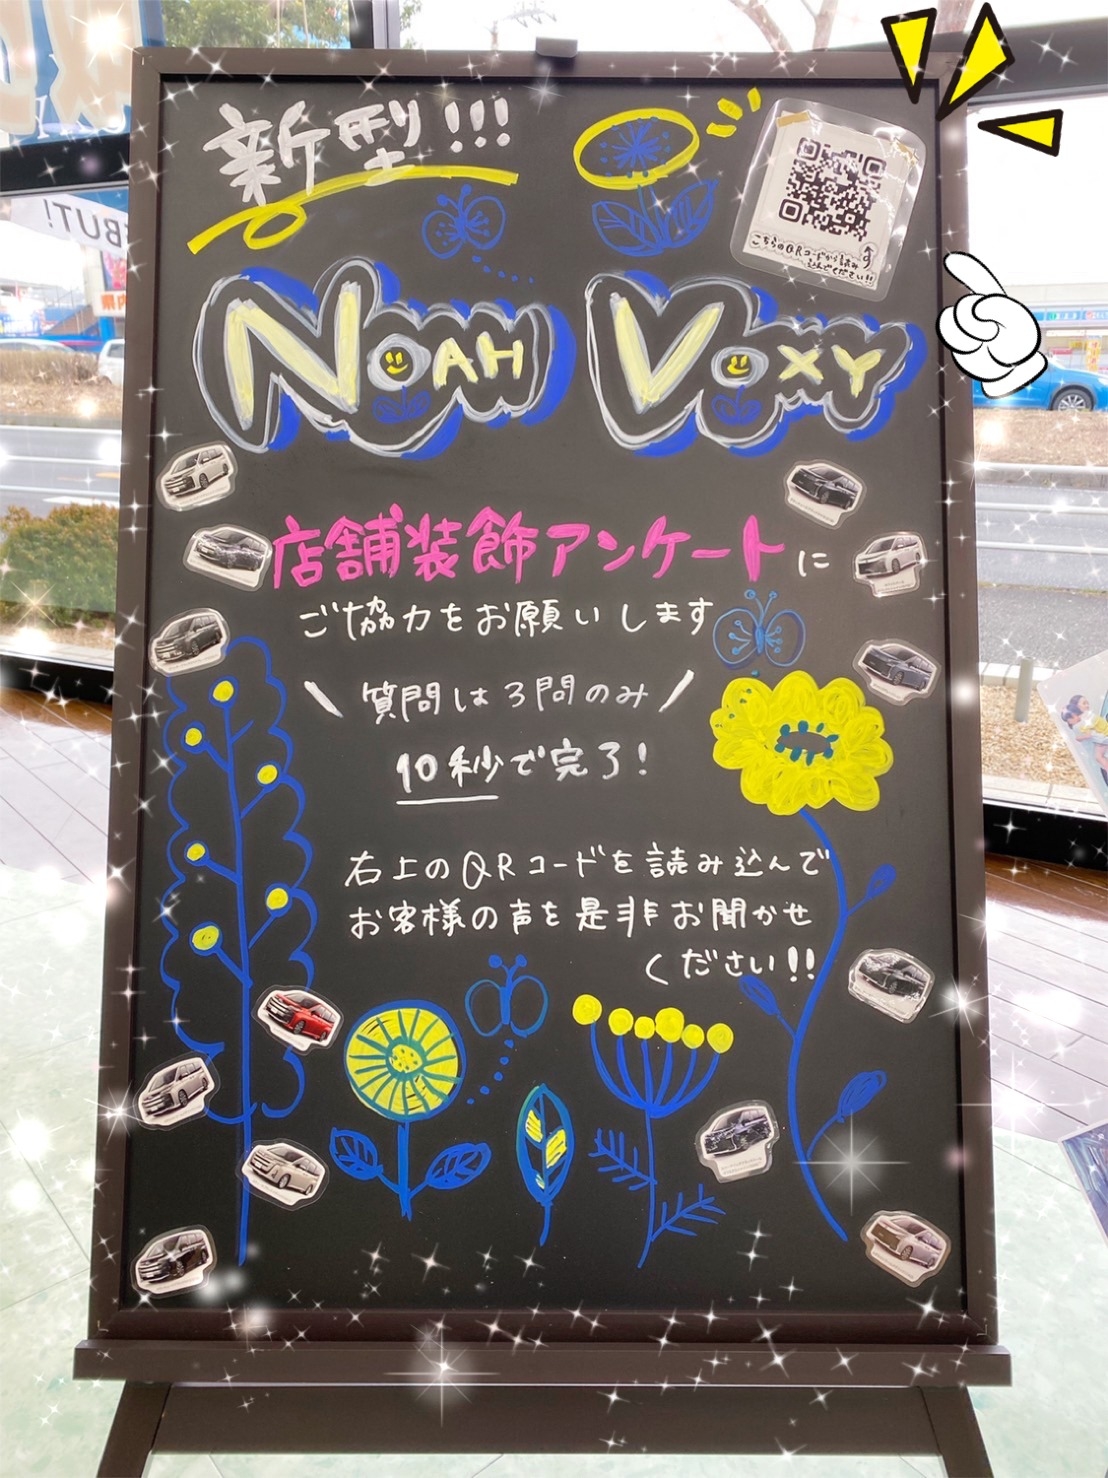 新型!!!
こちらのQRコードから読み
込んでください!!
NOAH VOXY
店舗装飾アンケートに
ご協力をお願いします
\ 質問は3問のみ /
10秒で完了!
右上のQRコードを読み込んで
お客様の声を是非お聞かせ
ください!!
BUT!
県内